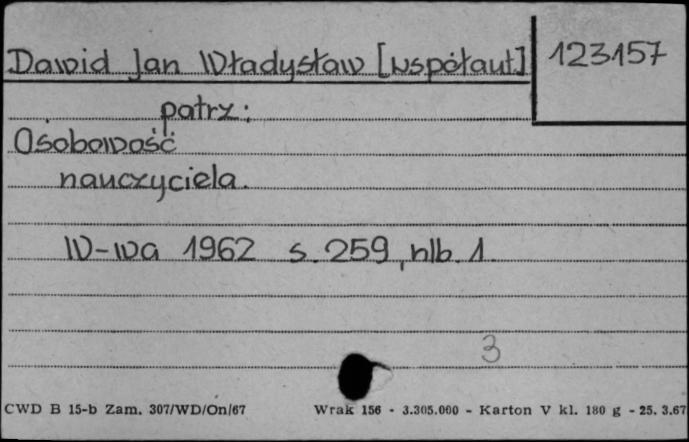 Dawid Jan Władysław [współaut]
123157
patrz:
Osobowość
nauczyciela.
W-wa 1962 s. 259, nlb. 1
3
CWD B 15-b Zam. 307/WD/On/67
Wrak 156 - 3.305.000 - Karton V kl. 180 g - 25. 3.67